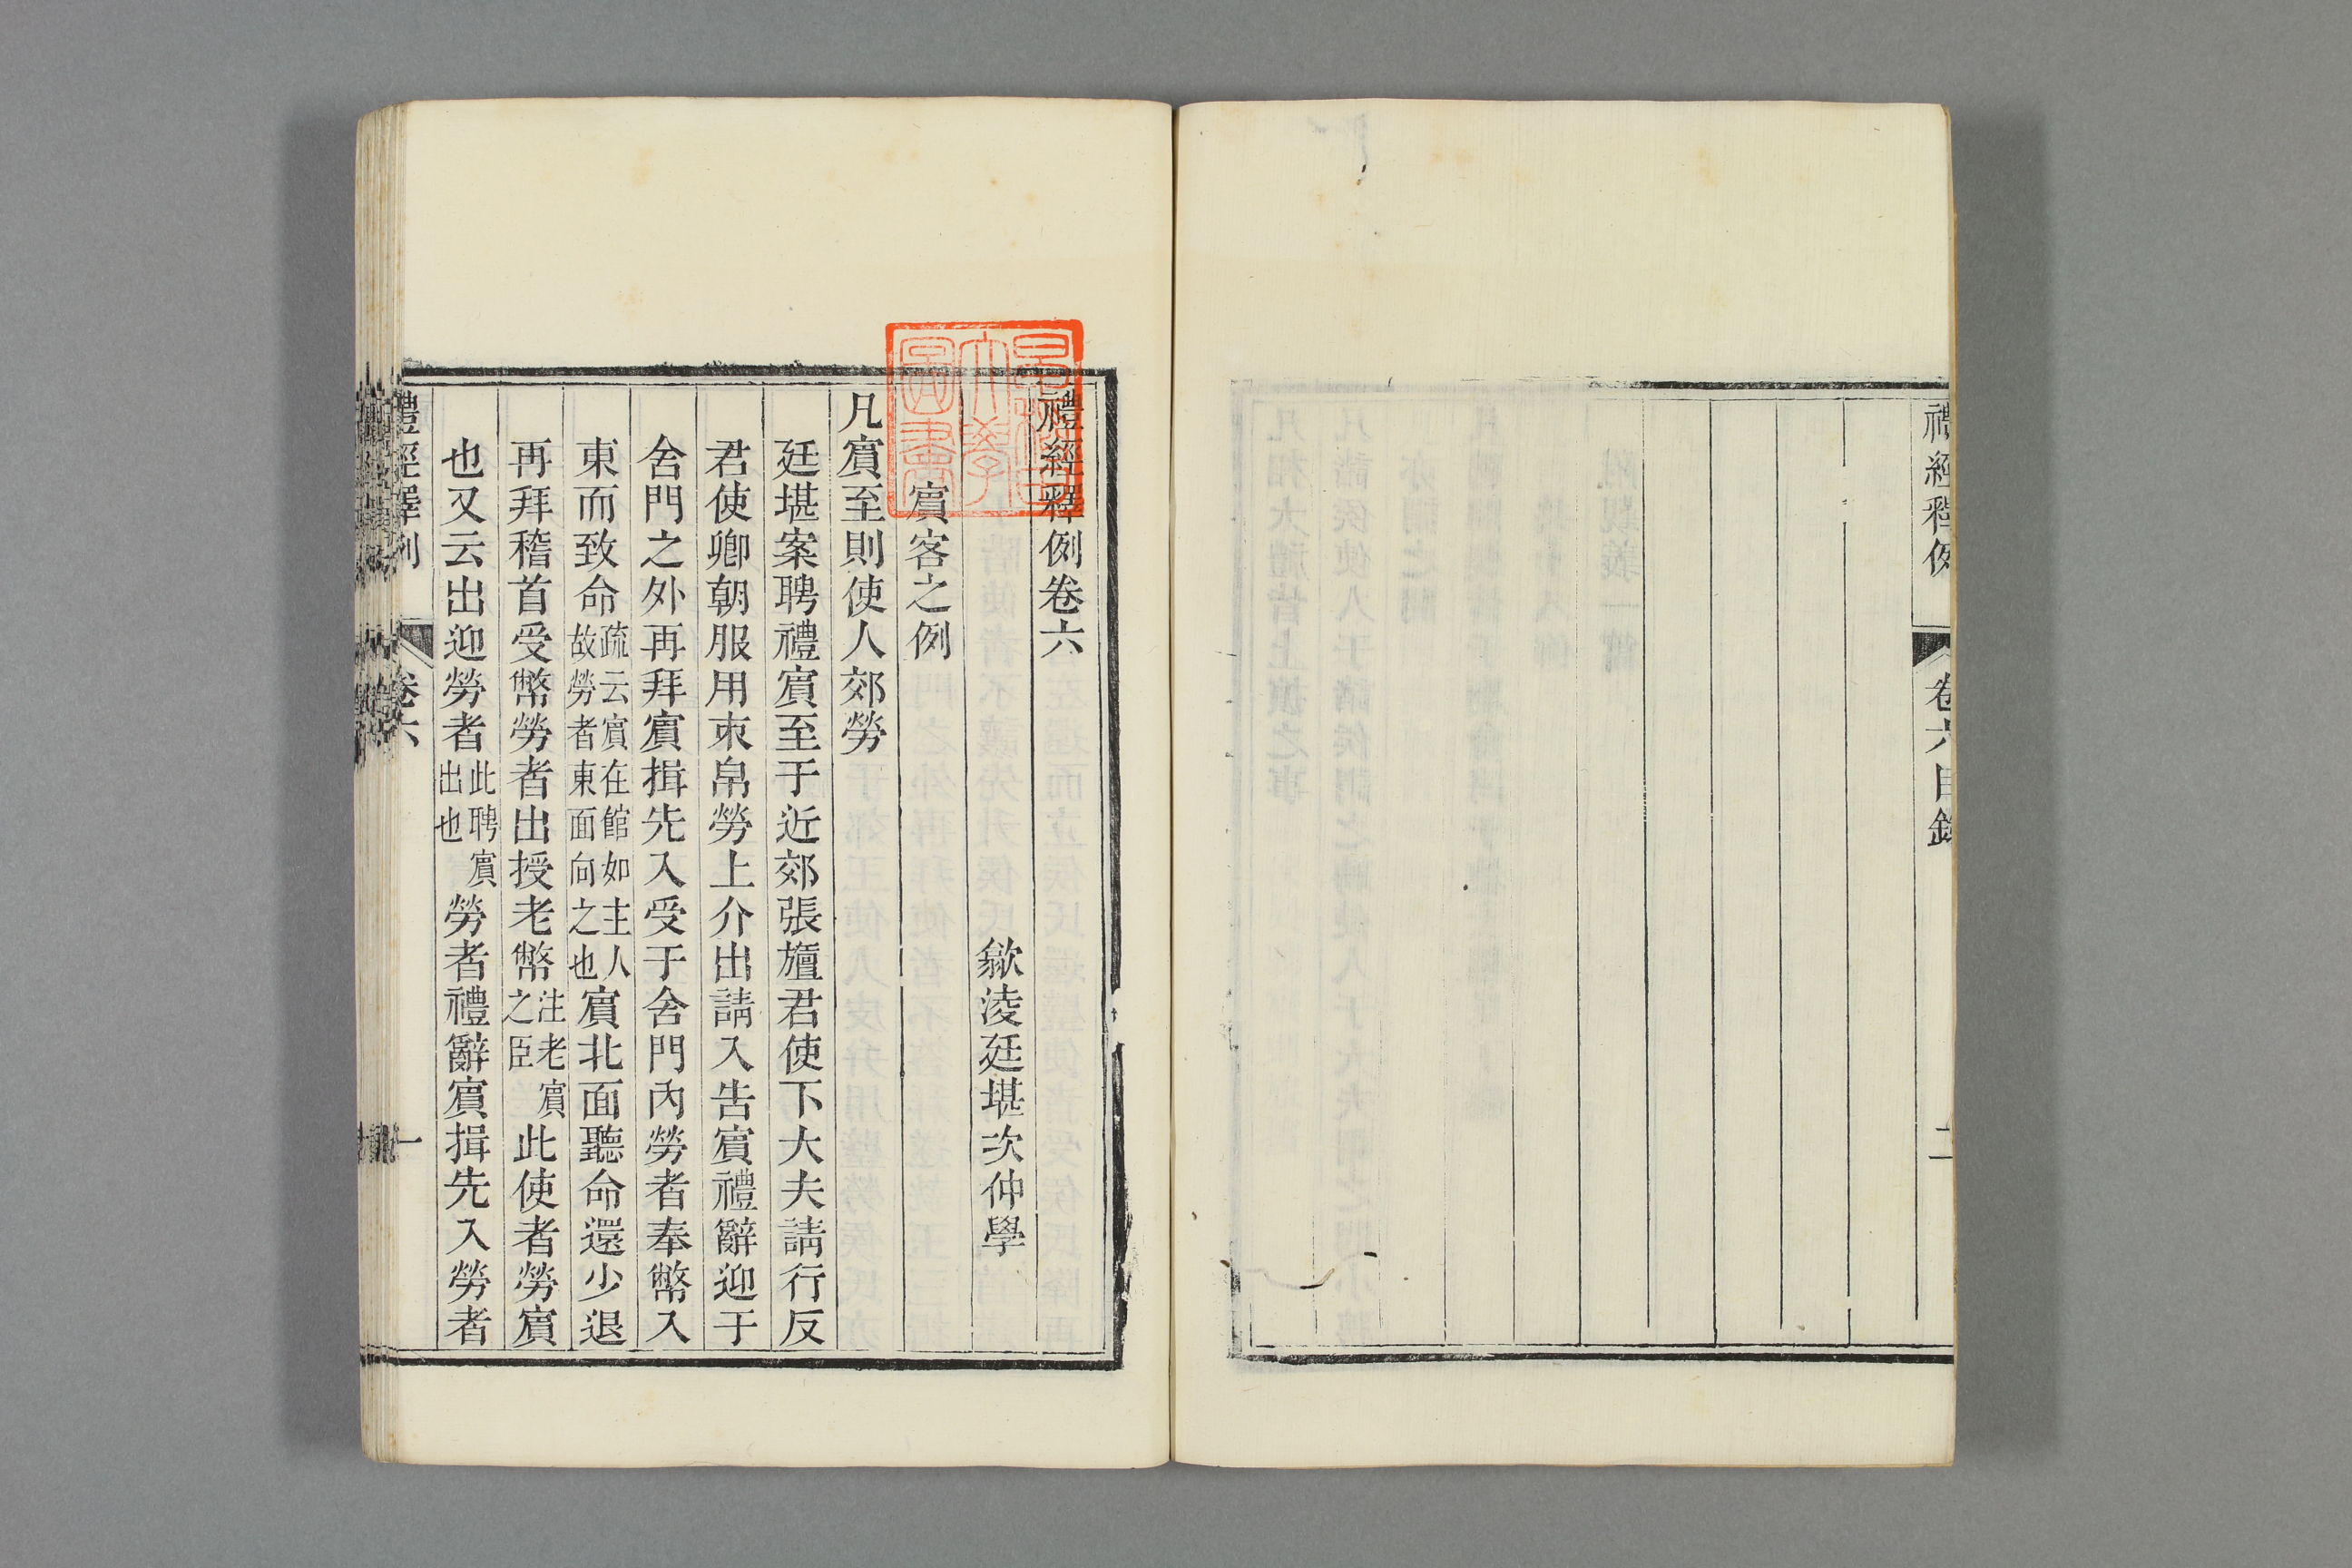 禮經釋例
卷六目錄
二
禮經釋例卷六
歙淩廷堪次仲學
賓客之例
凡賓至則使人郊勞
廷堪案聘禮賓至于近郊張旜君使下大夫請行反
君使卿朝服用束帛勞上介出請入告賓禮辭迎于
舍門之外再拜賓揖先入受于舍門內勞者奉幣入
東而致命疏云賓在館如主人故勞者東面向之也賓北面聽命還少退
再拜稽首受幣勞者出授老幣注老賓之臣此使者勞賓
也又云出迎勞者此聘賓出也勞者禮辭賓揖先入勞者
禮經釋例
卷六
一